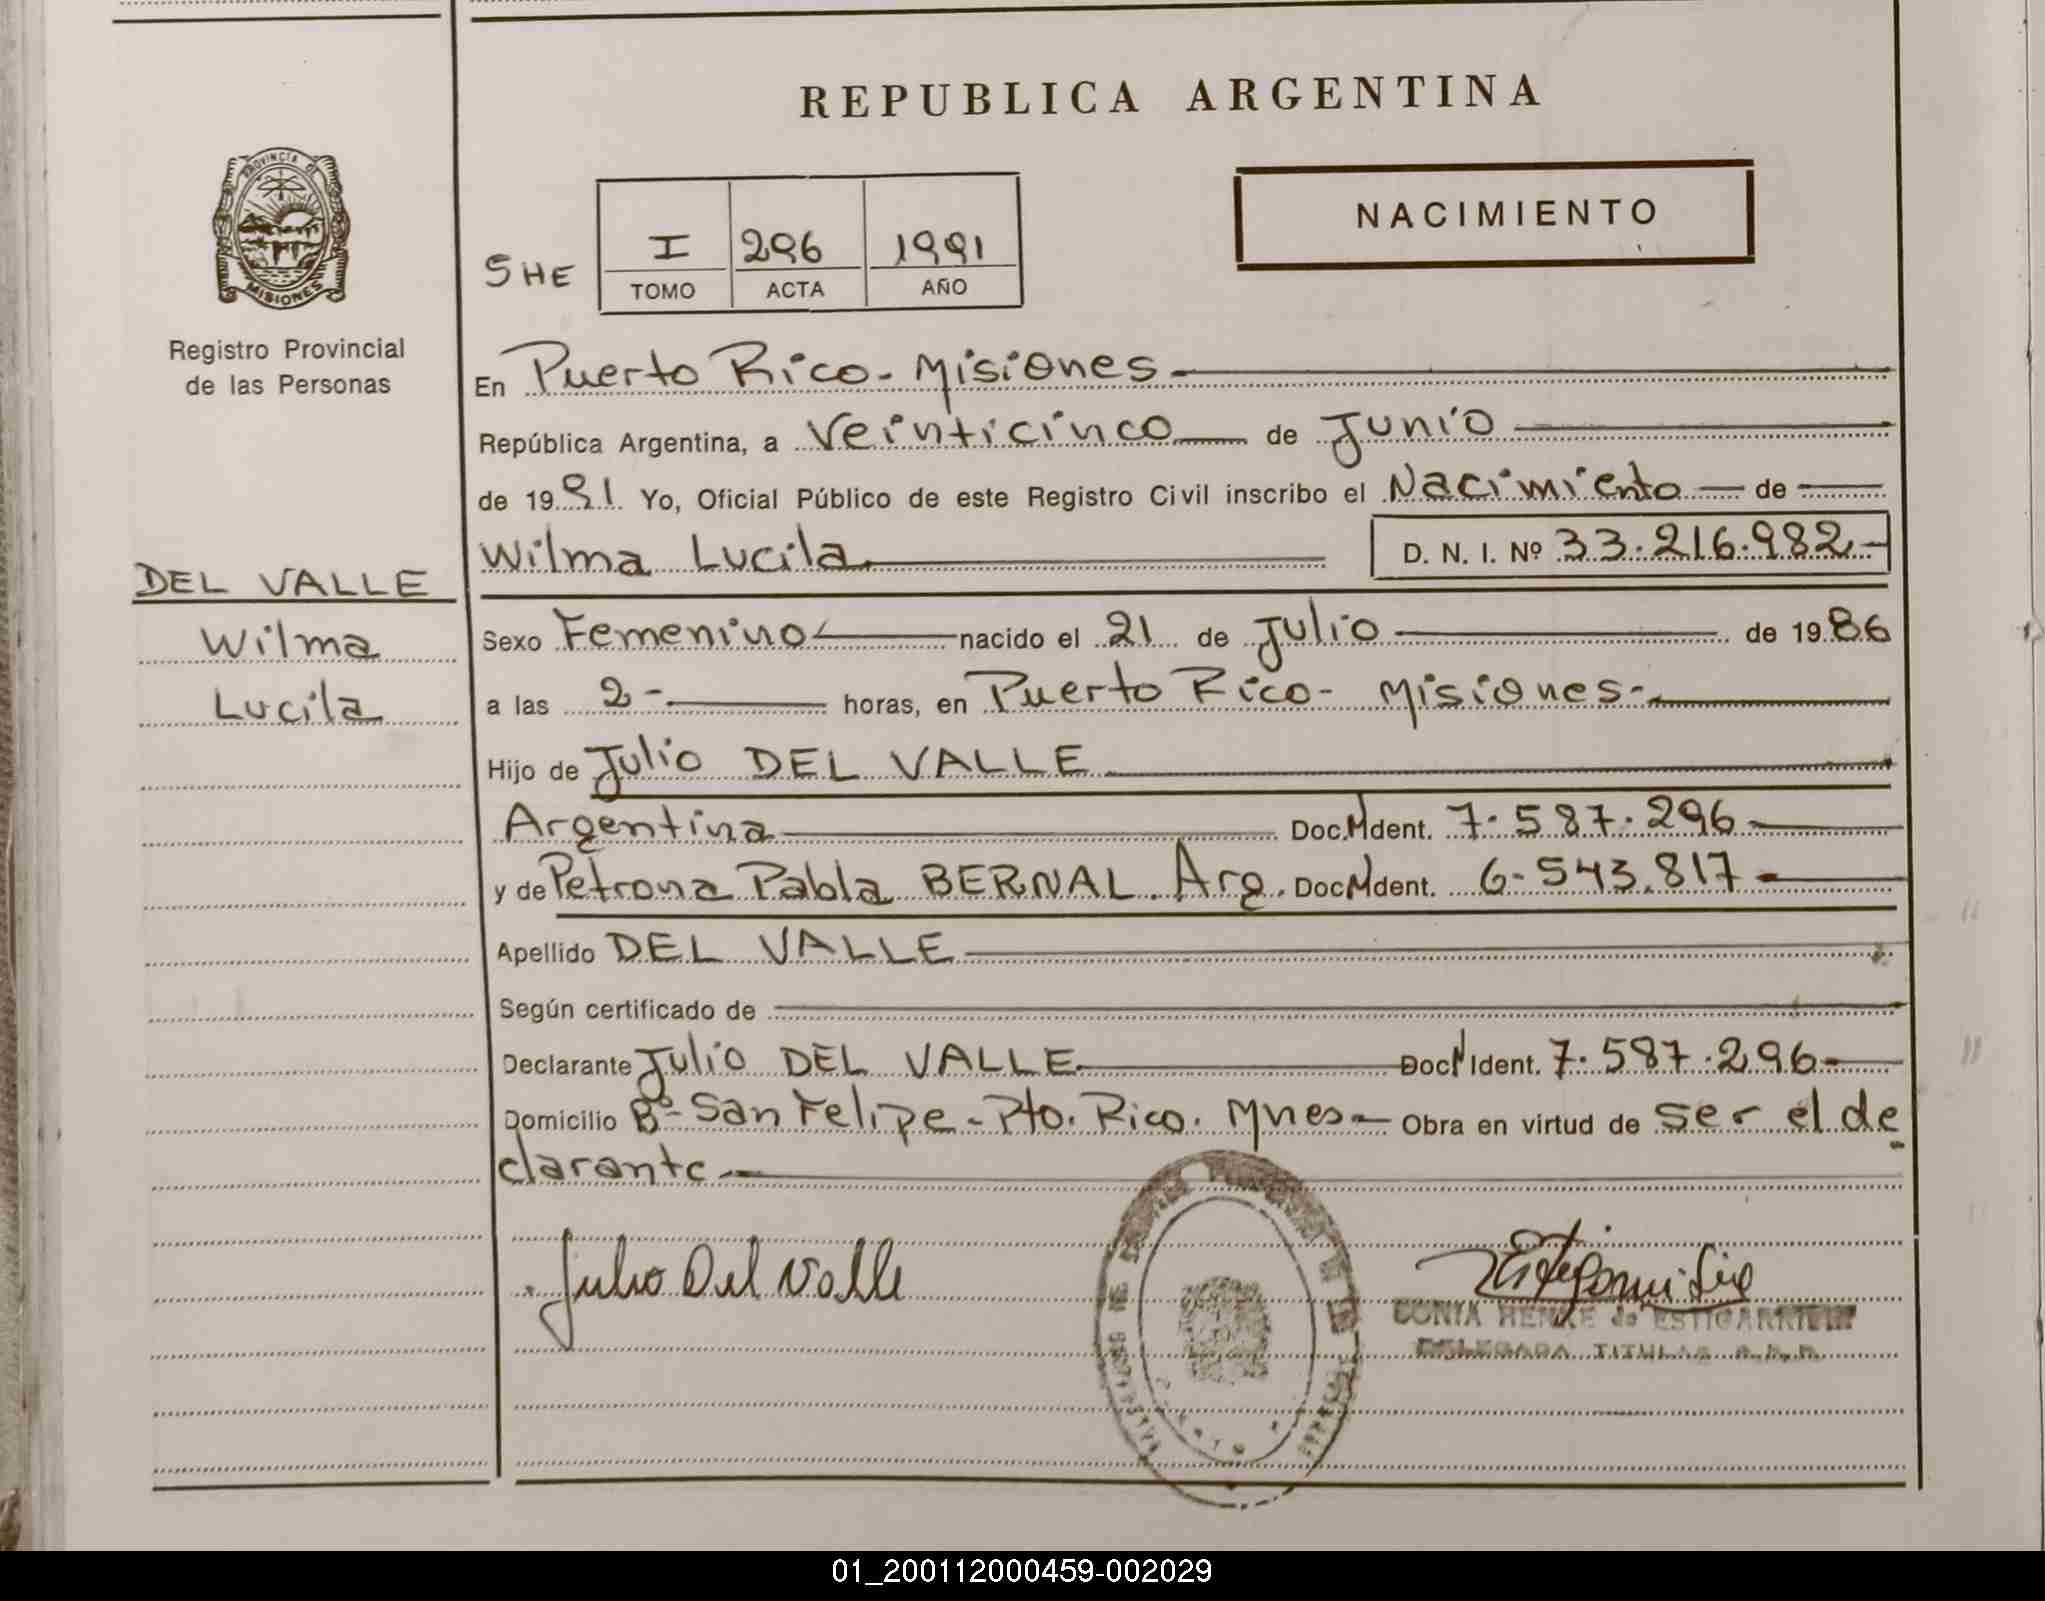 REPUBLICA ARGENTINA
PROVINCIA DE
MISIONES
Registro Provincial
de las Personas
SHE
I 296 1991
TOMO ACTA AÑO
NACIMIENTO
En Puerto Rico - Misiones
República Argentina, a Veinticinco de Junio
de 19 91 Yo, Oficial Público de este Registro Civil inscribo el Nacimiento de
Wilma Lucila D. N. I. Nº 33.216.982
DEL VALLE
Wilma
Lucila
Sexo Femenino nacido el 21 de Julio de 19 86
a las 2 - horas, en Puerto Rico - Misiones -
Hijo de Julio DEL VALLE
Argentina Doc. M Ident. 7.587.296
y de Petrona Pabla BERNAL Arg. Doc M Ident. 6-543.817
Apellido DEL VALLE
Según certificado de
Declarante Julio DEL VALLE Doc Ident. 7.587.296
Domicilio Bº San Felipe - Pto. Rico. Mnes - Obra en virtud de ser el de
clarante
Julio Del Valle
HENKE de
DELEGADA TITULAR
01_200112000459-002029